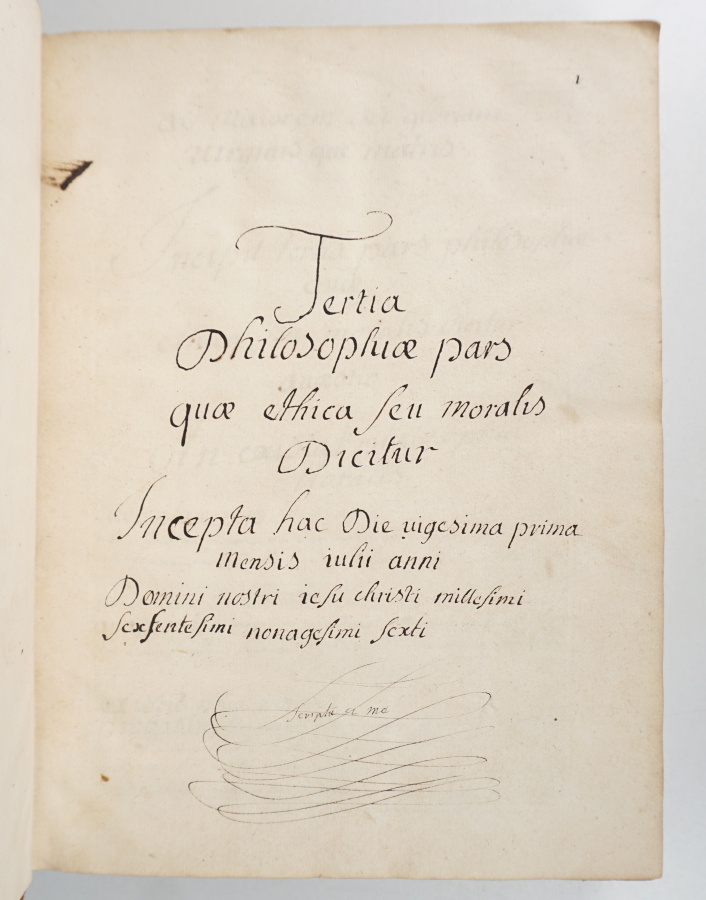 1
Tertia
Philosophiæ pars
quæ ethica seu moralis
Dicitur
Incepta hac Die vigesima prima
mensis iulii anni
Domini nostri iesu christi millesimi
sexsentesimi nonagesimi sexti
me